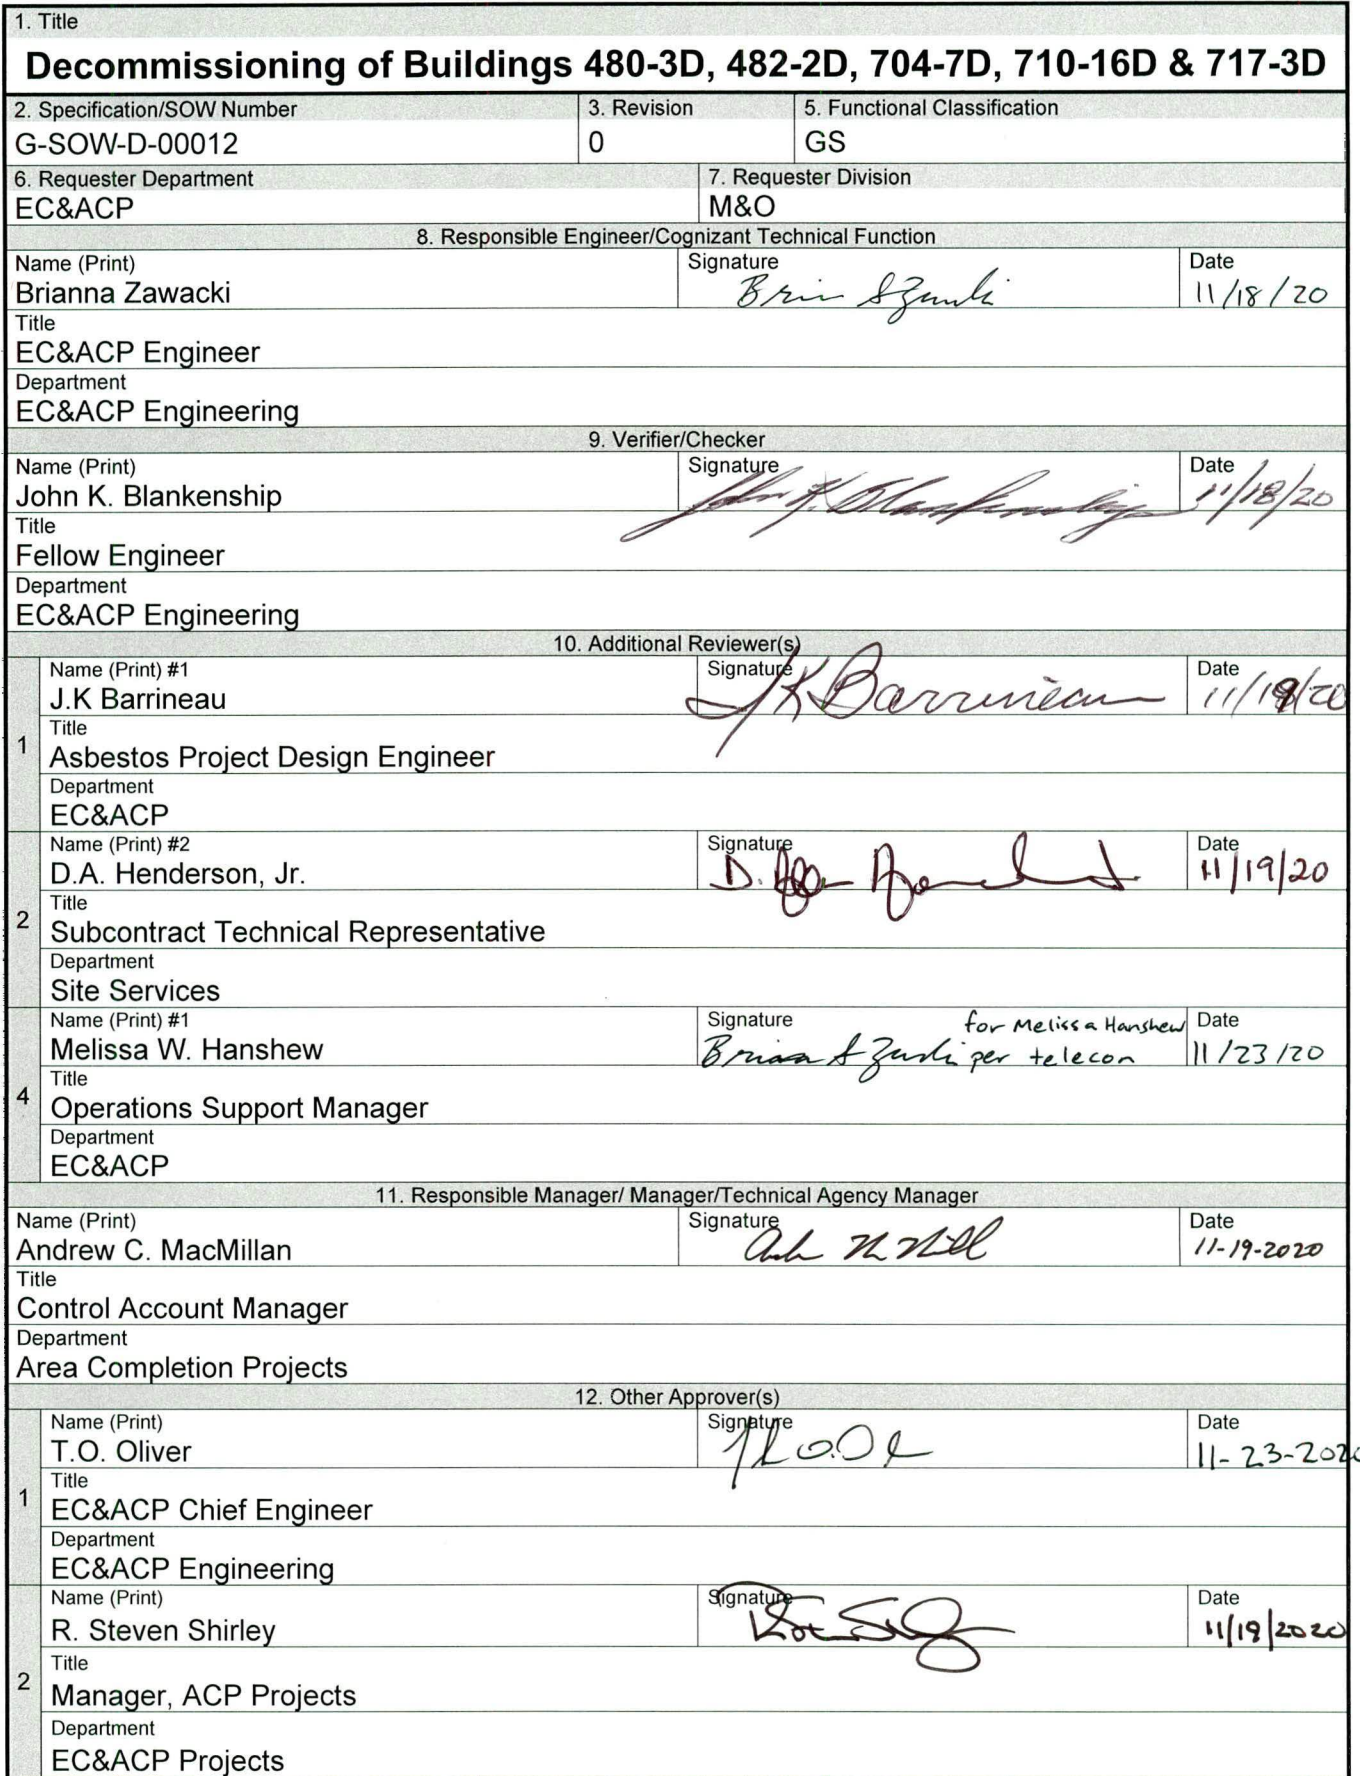 1. Title
Decommissioning of Buildings 480-3D, 482-2D, 704-7D, 710-16D & 717-3D
2. Specification/SOW Number 3. Revision 5. Functional Classification
G-SOW-D-00012 0 GS
6. Requester Department 7. Requester Division
EC&ACP M&O
8. Responsible Engineer/Cognizant Technical Function
Name (Print) Signature Date
Brianna Zawacki 11/18/20
Title
EC&ACP Engineer
Department
EC&ACP Engineering
9. Verifier/Checker
Name (Print) Signature Date
John K. Blankenship John K. Blankenship 11/18/20
Title
Fellow Engineer
Department
EC&ACP Engineering
10. Additional Reviewer(s)
Name (Print) #1 Signature Date
J.K Barrineau JK Barrineau 11/19/20
Title
1
Asbestos Project Design Engineer
Department
EC&ACP
Name (Print) #2 Signature Date
D.A. Henderson, Jr. D. 11/19/20
Title
2
Subcontract Technical Representative
Department
Site Services
Name (Print) #1 Signature for Melissa Hanshew Date
Melissa W. Hanshew per telecon 11/23/20
Title
4
Operations Support Manager
Department
EC&ACP
11. Responsible Manager/ Manager/Technical Agency Manager
Name (Print) Signature Date
Andrew C. MacMillan 11-19-2020
Title
Control Account Manager
Department
Area Completion Projects
12. Other Approver(s)
Name (Print) Signature Date
T.O. Oliver 11-23-2020
Title
1
EC&ACP Chief Engineer
Department
EC&ACP Engineering
Name (Print) Signature Date
R. Steven Shirley 11/19/2020
Title
2
Manager, ACP Projects
Department
EC&ACP Projects